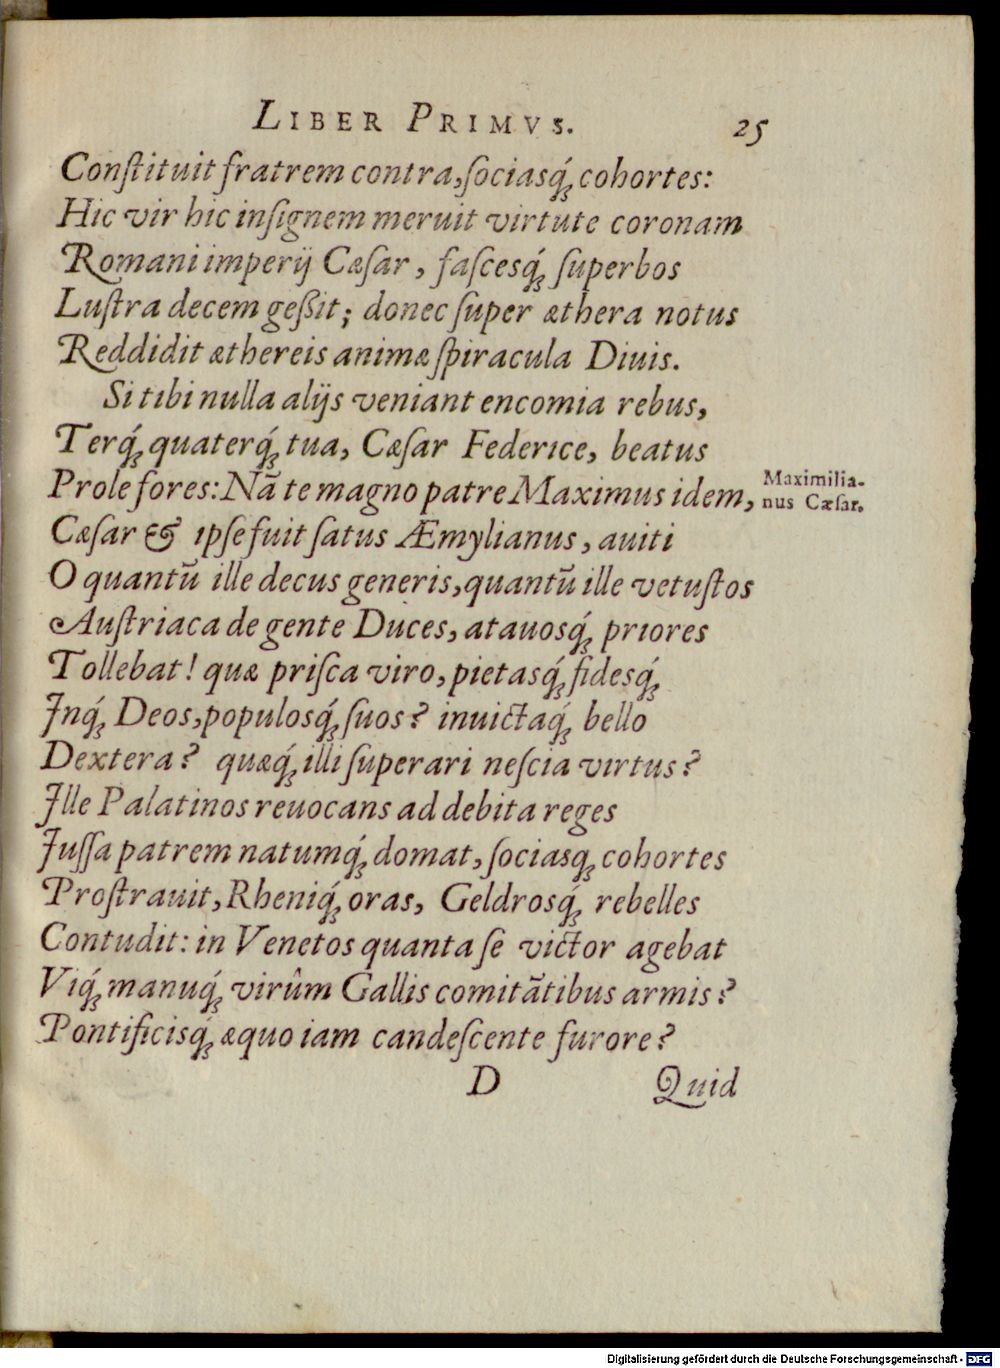 LIBER PRIMVS. 25
Conſtituit fratrem contra, ſociasq́; cohortes:
Hic vir hic inſignem meruit virtute coronam
Romani imperij Cæſar, faſcesq́; ſuperbos
Luſtra decem geßit; donec ſuper æthera notus
Reddidit æthereis animæ ſpiracula Diuis.
Si tibi nulla alijs veniant encomia rebus,
Terq́; quaterq́; tua, Cæſar Federice, beatus
Prole fores: Nã te magno patre Maximus idem,
Maximilia-
nus Cæſar.
Cæſar & ipſe fuit ſatus Æmylianus, auiti
O quantũ ille decus generis, quantũ ille vetuſtos
Auſtriaca de gente Duces, atauosq́; priores
Tollebat! quæ priſca viro, pietasq́; fidesq́;
Inq́; Deos, populosq́; ſuos? inuictaq́; bello
Dextera? quæq́; illi ſuperari neſcia virtus?
Ille Palatinos reuocans ad debita reges
Juſſa patrem natumq́; domat, ſociasq; cohortes
Proſtrauit, Rheniq́; oras, Geldrosq́; rebelles
Contudit: in Venetos quanta ſe victor agebat
Viq́; manuq́; virûm Gallis comitãtibus armis?
Pontificisq́; æquo iam candeſcente furore?
D Quid
Digitalisierung gefördert durch die Deutsche Forschungsgemeinschaft - DFG